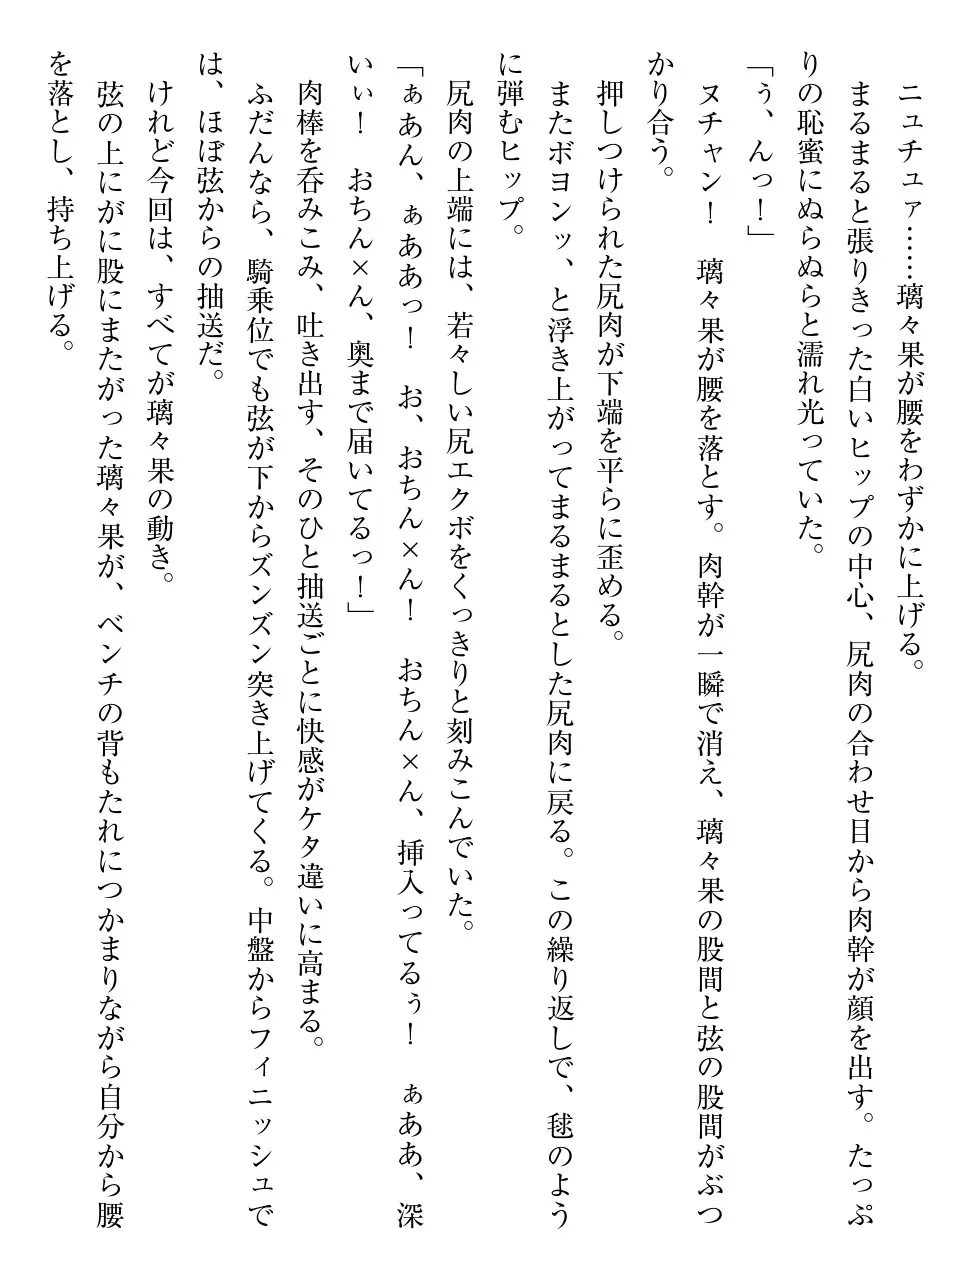 ニュチュァ……璃々果が腰をわずかに上げる。
まるまると張りきった白いヒップの中心、尻肉の合わせ目から肉幹が顔を出す。たっぷ
りの恥蜜にぬらぬらと濡れ光っていた。
「ぅ、んっ！」
ヌチャン！　璃々果が腰を落とす。肉幹が一瞬で消え、璃々果の股間と弦の股間がぶつ
かり合う。
押しつけられた尻肉が下端を平らに歪める。
またボヨンッ、と浮き上がってまるまるとした尻肉に戻る。この繰り返しで、毬のよう
に弾むヒップ。
尻肉の上端には、若々しい尻エクボをくっきりと刻みこんでいた。
「ぁあん、ぁああっ！　お、おちん×ん！　おちん×ん、挿入ってるぅ！　ぁああ、深
いぃ！　おちん×ん、奥まで届いてるっ！」
肉棒を呑みこみ、吐き出す、そのひと抽送ごとに快感がケタ違いに高まる。
ふだんなら、騎乗位でも弦が下からズンズン突き上げてくる。中盤からフィニッシュで
は、ほぼ弦からの抽送だ。
けれど今回は、すべてが璃々果の動き。
弦の上にがに股にまたがった璃々果が、ベンチの背もたれにつかまりながら自分から腰
を落とし、持ち上げる。